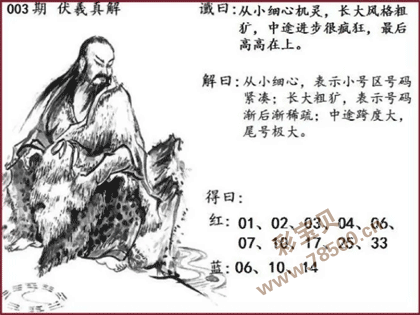 003期 伏羲真解
谶曰：从小细心机灵，长大风格粗
犷，中途进步很疯狂，最后
高高在上。
解曰：从小细心，表示小号区号码
紧凑；长大粗犷，表示号码
渐后渐稀疏；中途跨度大，
尾号极大。
得曰：
红：01、02、03、04、06、
07、10、17、25、33
蓝：06、10、14
彩宝贝
78500.cn